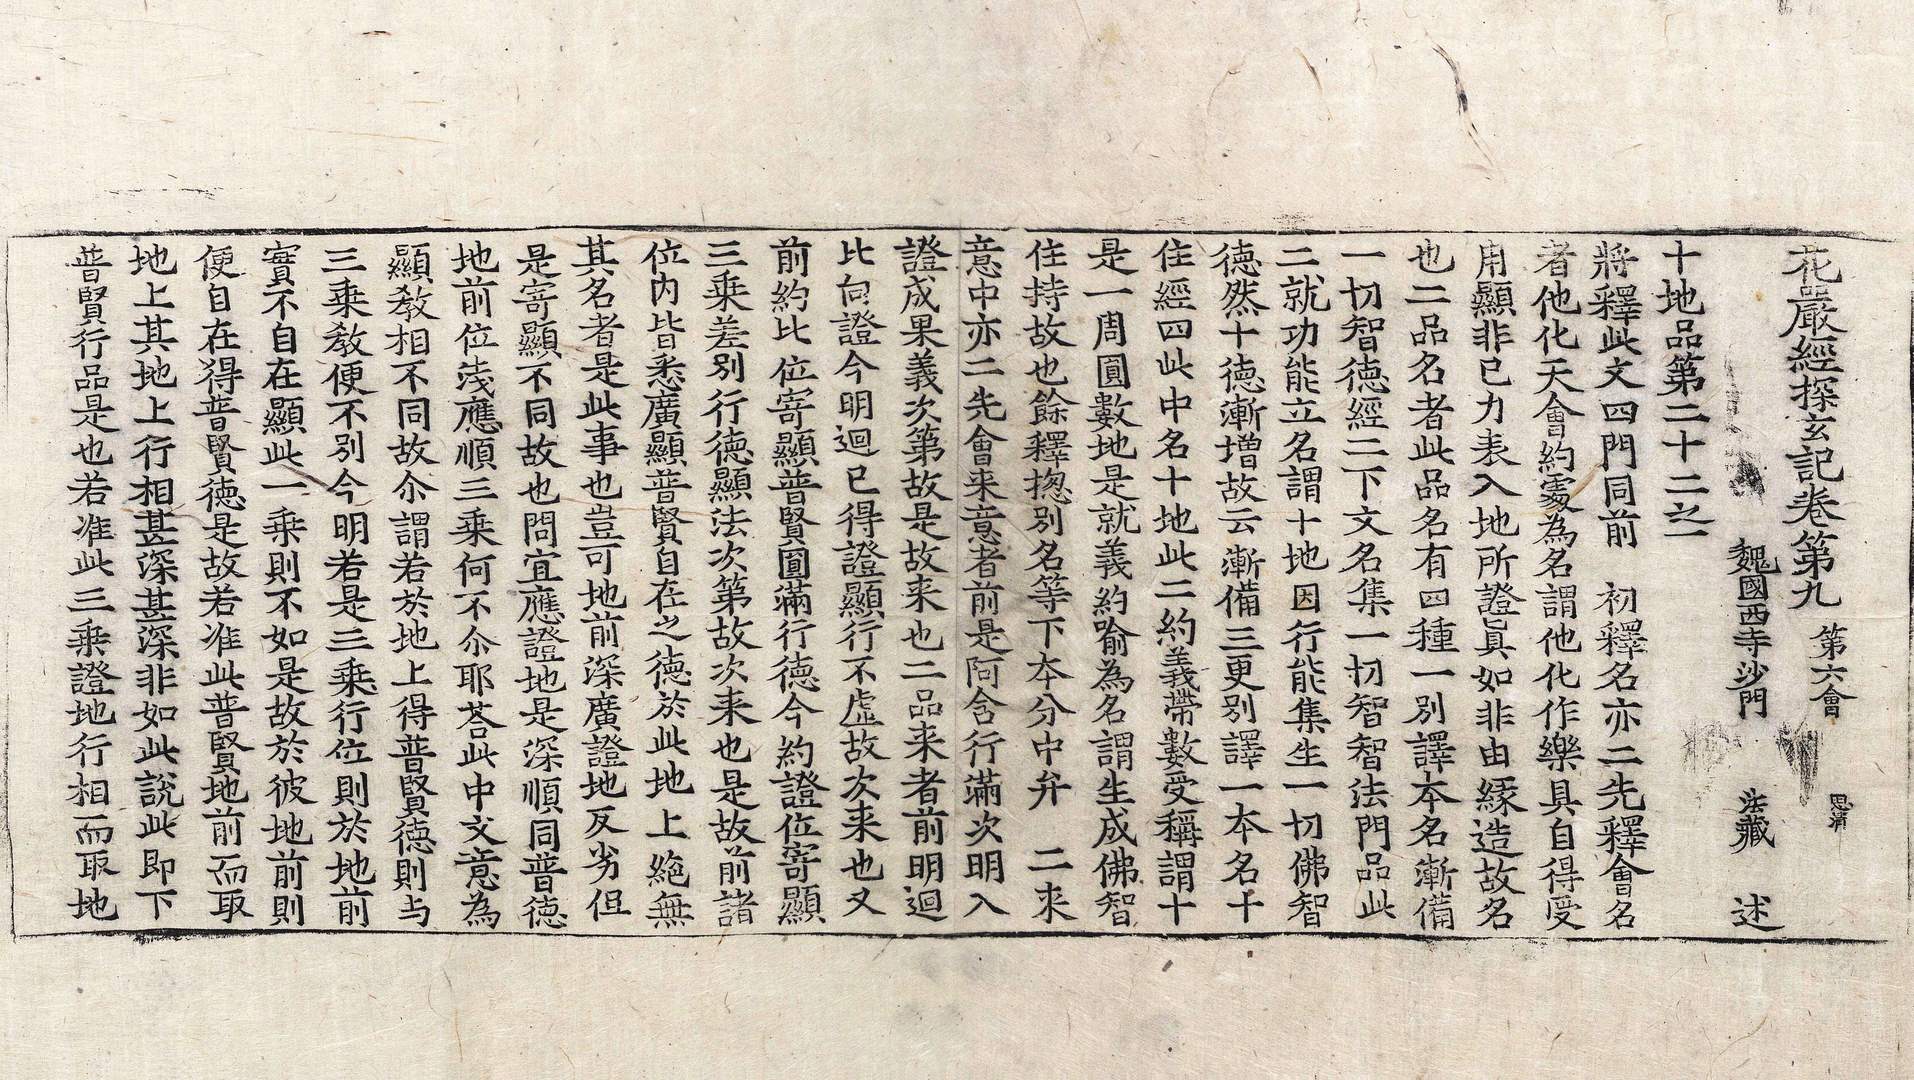 花嚴經探玄記卷第九 第六會
魏國西寺沙門 法藏 述
十地品第二十二之一
將釋此文四門同前 初釋名亦二先釋會名
者他化天會約處為名謂他化作樂具自得受
用顯非已力表入地所證眞如非由緣造故名
也二品名者此品名有四種一別譯本名漸備
一切智德經二下文名集一切智智法門品此
二就功能立名謂十地因行能集生一切佛智
德然十德漸增故云漸備三更別譯一本名十
住經四此中名十地此二約義帶數受稱謂十
是一周圓數地是就義約喻為名謂生成佛智
住持故也餘釋揔別名等下本分中弁 二來
意中亦二先會来意者前是阿含行滿次明入
證成果義次第故是故来也二品来者前明迴
比向證今明迴已得證顯行不虛故次来也又
前約比位寄顯普賢圓滿行德今約證位寄顯
三乘差別行德顯法次第故次来也是故前諸
位內皆悉廣顯普賢自在之德於此地上絕無
其名者是此事也豈可地前深廣證地反劣但
是寄顯不同故也問宜應證地是深順同普德
地前位淺應順三乘何不尒耶荅此中文意為
顯教相不同故尒謂若於地上得普賢德則与
三乘教便不別今明若是三乘行位則於地前
實不自在顯此一乘則不如是故於彼地前則
便自在得普賢德是故若准此普賢地前而取
地上其地上行相甚深甚深非如此說此即下
普賢行品是也若准此三乘證地行相而取地